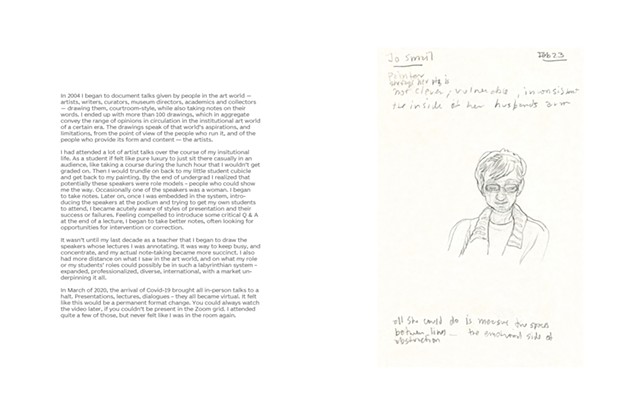 In 2004 I began to document talks given by people in the art world —
artists, writers, curators, museum directors, academics and collectors
— drawing them, courtroom-style, while also taking notes on their
words. I ended up with more than 100 drawings, which in aggregate
convey the range of opinions in circulation in the institutional art world
of a certain era. The drawings speak of that world's aspirations, and
limitations, from the point of view of the people who run it, and of the
people who provide its form and content — the artists.
I had attended a lot of artist talks over the course of my insitutional
life. As a student if felt like pure luxury to just sit there casually in an
audience, like taking a course during the lunch hour that I wouldn't get
graded on. Then I would trundle on back to my little student cubicle
and get back to my painting. By the end of undergrad I realized that
potentially these speakers were role models – people who could show
me the way. Occasionally one of the speakers was a woman. I began
to take notes. Later on, once I was embedded in the system, intro-
ducing the speakers at the podium and trying to get my own students
to attend, I became acutely aware of styles of presentation and their
success or failures. Feeling compelled to introduce some critical Q & A
at the end of a lecture, I began to take better notes, often looking for
opportunities for intervention or correction.
It wasn't until my last decade as a teacher that I began to draw the
speakers whose lectures I was annotating. It was way to keep busy, and
concentrate, and my actual note-taking became more succinct. I also
had more distance on what I saw in the art world, and on what my role
or my students' roles could possibly be in such a labyrinthian system –
expanded, professionalized, diverse, international, with a market un-
derpinning it all.
In March of 2020, the arrival of Covid-19 brought all in-person talks to a
halt. Presentations, lectures, dialogues – they all became virtual. It felt
like this would be a permanent format change. You could always watch
the video later, if you couldn't be present in the Zoom grid. I attended
quite a few of those, but never felt like I was in the room again.
Jo Smail
Feb 23
Painter
not clever, vulnerable, inconsistent
the inside of her husbands arm
all she could do is measure the spaces
between lines — the emotional side of
abstraction